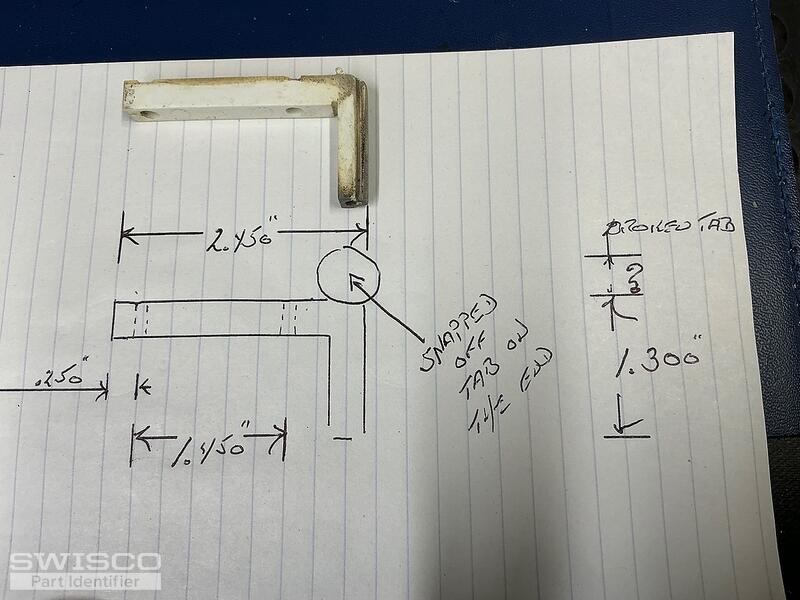 BROKEN TAB
2.450"
?
SNAPPED
OFF
TAB ON
THE END
1.300"
.250"
1.450"
SWISCO
Part Identifier